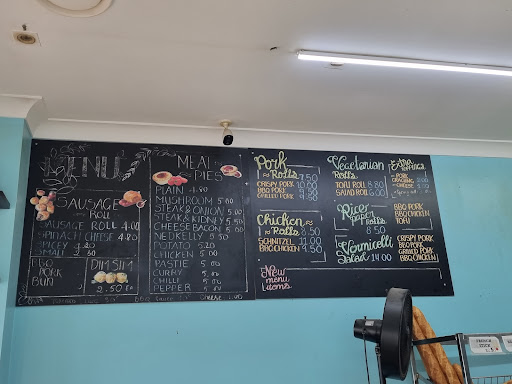 MENU
SAUSAGE
ROLL
SAUSAGE ROLL 4.00
SPINACH CHEESE 4.80
SPICEY 4.80
SMALL
BBQ
PORK
BUN
DIM SIM
2.50 EA
MEAT
PIES
PLAIN 4.80
MUSHROOM 5.00
STEAK & ONION 5.00
STEAK & KIDNEY 5.00
CHEESE BACON 5.00
NED KELLY 5.50
POTATO 5.20
CHICKEN 5.00
PASTIE 5.00
CURRY 5.00
CHILLI 5.00
PEPPER 5.00
Pork
Rolls 7.50
CRISPY PORK 10.00
BBQ PORK 9.50
GRILLED PORK 9.50
Chicken
Rolls 6.50
SCHNITZEL 11.00
BBQ CHICKEN 9.50
New
menu
items
Vegetarian
Rolls
TOFU ROLL 8.80
SALAD ROLL 6.00
Rice
paper
rolls
8.50
BBQ PORK
BBQ CHICKEN
TOFU
Vermicelli
Salad 14.00
CRISPY PORK
BBQ PORK
GRILLED PORK
BBQ CHICKEN
PORK
CRACKLING
CHEESE
FRENCH
STICK